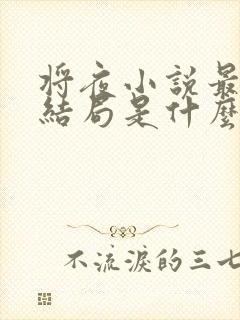 將夜小説最
結局是什麼
不流淚的三七